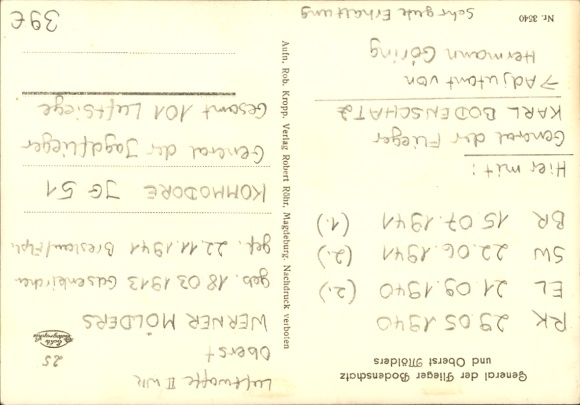 General der Flieger Bodenschatz
und Oberst Mölders
RK 29.05.1940
EL 21.09.1940 (2.)
SW 22.06.1941 (2.)
BR 15.07.1941 (1.)
Hier mit:
General der Flieger
KARL BODENSCHATZ
→ Adjutant von
Hermann Göring
Sehr gute Erhaltung
Nr. 3540
Aufn. Rob. Kropp. Verlag Robert Röhr, Magdeburg. Nachdruck verboten
Luftwaffe II WK
Oberst
25
WERNER MÖLDERS
geb. 18.03.1913 Gelsenkirchen
gef. 22.11.1941 Breslau/
KOMMODORE JG 51
General der Jagdflieger
Gesamt 101 Luftsiege
39€